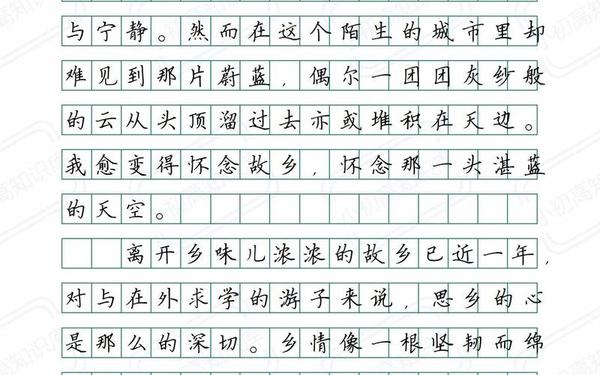 与宁静。然而在这个陌生的城市里却
难见到那片蔚蓝，偶尔一团团灰纱般
的云从头顶溜过去亦或堆积在天边。
我愈变得怀念故乡，怀念那一头湛蓝
的天空。
离开乡味儿浓浓的故乡已近一年，
对与在外求学的游子来说，思乡的心
是那么的深切。乡情像一根坚韧而绵